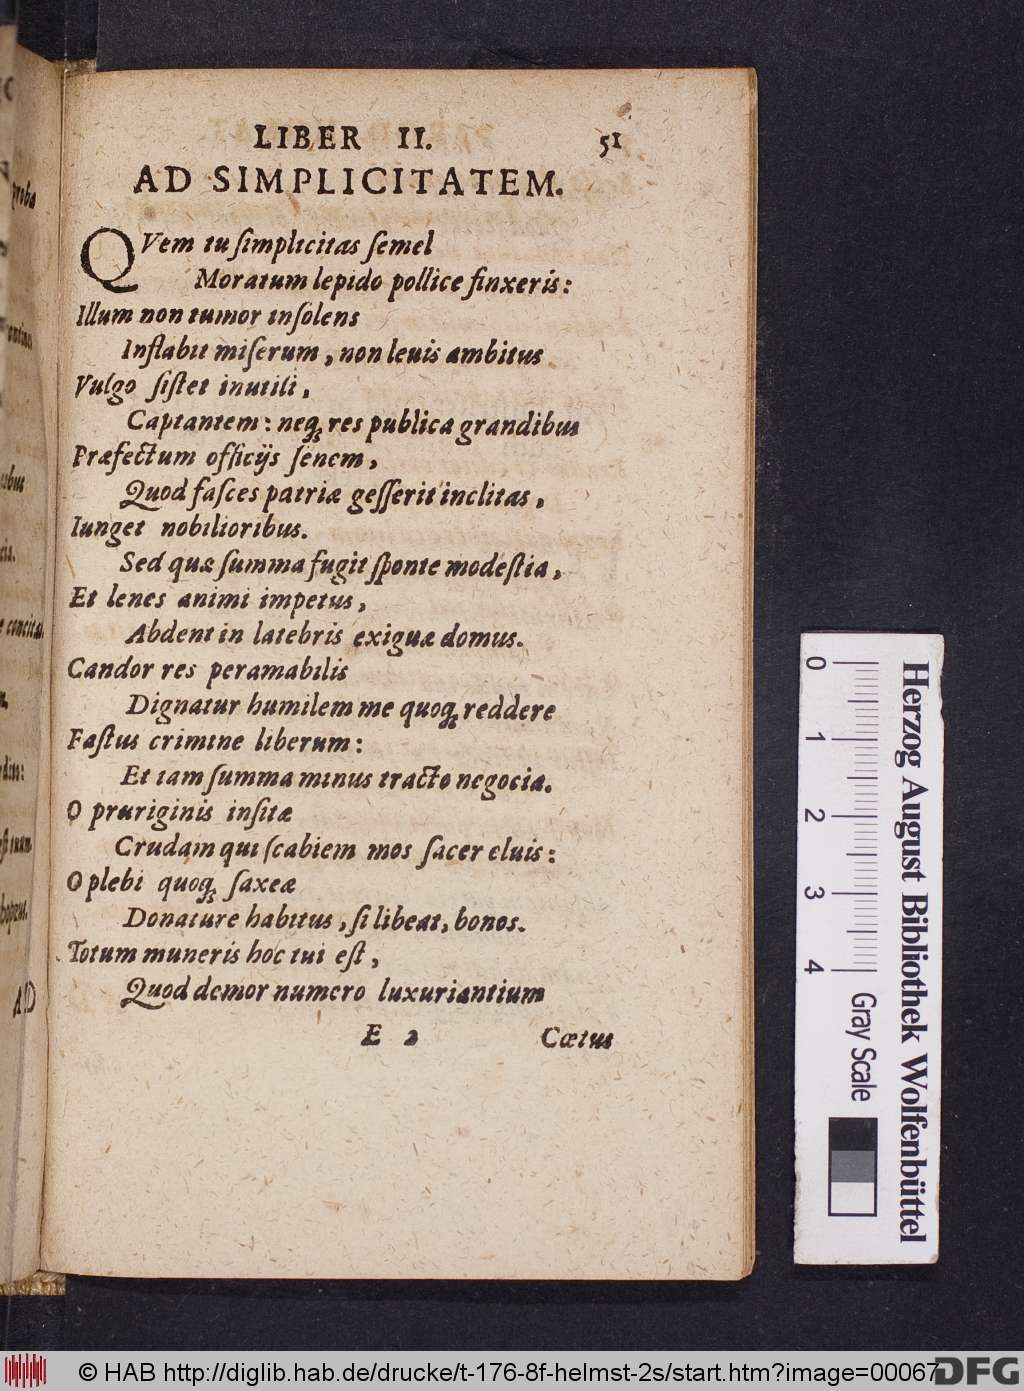 LIBER II. 51
AD SIMPLICITATEM.
QVem tu ſimplicitas ſemel
Moratum lepido pollice finxeris:
Illum non tumor inſolens
Inflabit miſerum, non leuis ambitus
Vulgo ſiſtet inutili,
Captantem: neq; res publica grandibus
Præfectum officijs ſenem,
Quod faſces patriæ geſſerit inclitas,
Iunget nobilioribus.
Sed quæ ſumma fugit ſponte modeſtia,
Et lenes animi impetus,
Abdent in latebris exiguæ domus.
Candor res peramabilis
Dignatur humilem me quoq; reddere
Faſtus crimine liberum:
Et iam ſumma minus tracto negocia.
O pruriginis inſitæ
Crudam qui ſcabiem mos ſacer eluis:
O plebi quoq; ſaxeæ
Donature habitus, ſi libeat, bonos.
Totum muneris hoc tui eſt,
Quod demor numero luxuriantium
E 2 Cœtus
proba
concitat
AD
0 1 2 3 4
Gray Scale
Herzog August Bibliothek Wolfenbüttel
© HAB http://diglib.hab.de/drucke/t-176-8f-helmst-2s/start.htm?image=00067
DFG